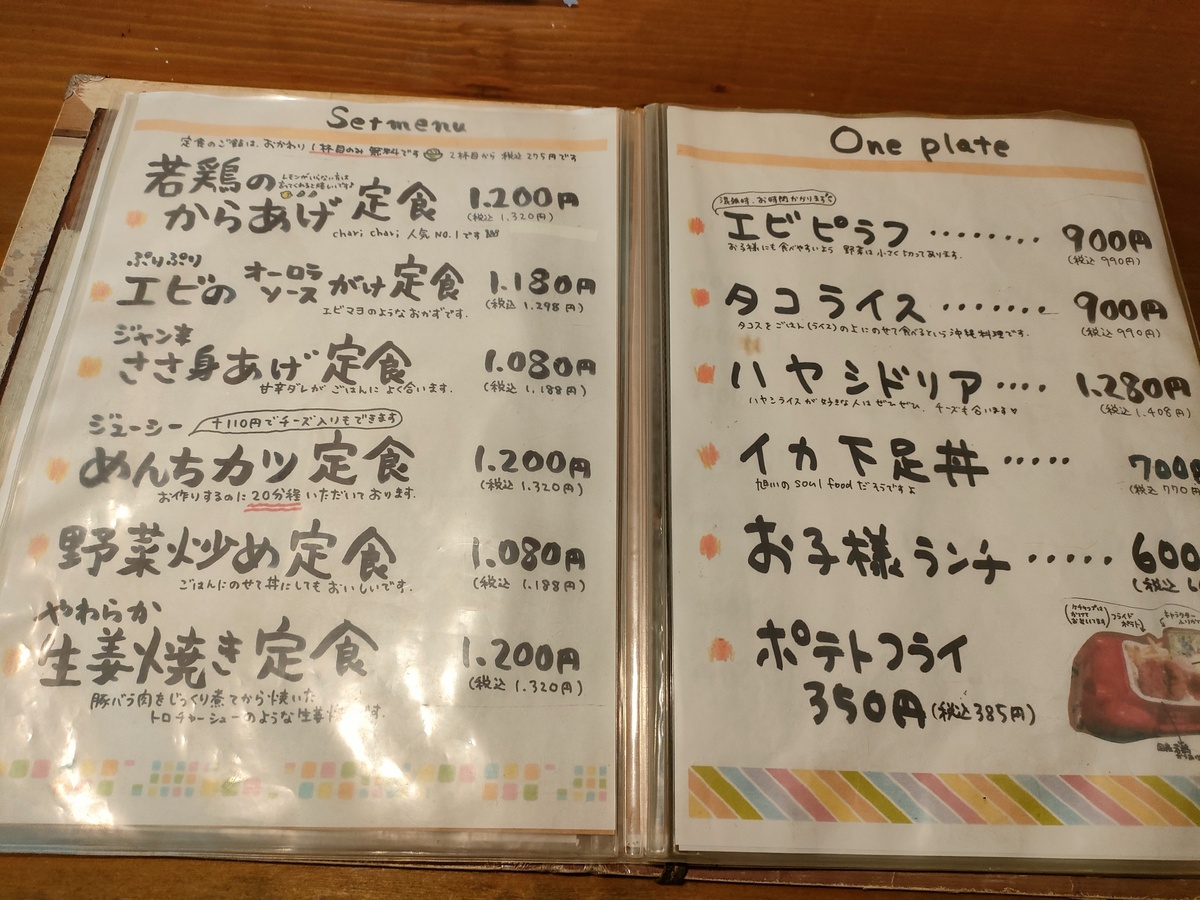 Setmenu
定食のご飯は、おかわり1杯目のみ無料です 2杯目から 税込275円です
若鶏の
からあげ定食 1.200円
(税込 1.320円)
chari chari 人気 NO.1です
ぷりぷり
エビのオーロラソースがけ定食 1.180円
(税込 1.298円)
エビマヨのようなおかずです.
ジャン辛
ささ身あげ定食 1.080円
(税込 1.188円)
甘辛ダレが ごはんに よく合います.
ジューシー
+110円でチーズ入りもできます
めんちカツ定食 1.200円
(税込 1.320円)
お作りするのに20分程いただいております.
野菜炒め定食 1.080円
(税込 1.188円)
ごはんにのせて丼にしても おいしいです.
やわらか
生姜焼き定食 1.200円
(税込 1.320円)
豚バラ肉をじっくり煮てから焼いた
トロチャーシューのような生姜です.
One plate
混雑時、お時間かかります
エビピラフ ········ 900円
(税込 990円)
お子様にも食べやすいよう 野菜は小さく切ってあります.
タコライス ······· 900円
(税込 990円)
タコスをごはん(ライス)の上にのせて食べるという沖縄料理です.
ハヤシドリア ···· 1.280円
(税込 1.408円)
ハヤシライスが好きな人はぜひぜひ. チーズも合います♥
イカ下足丼 ····· 700円
(税込 770円
旭川のsoul foodだそうですよ
お子様ランチ ····· 600
(税込 6
ケチャップは
フライドポテト
キャラクター
ポテトフライ
350円(税込385円)